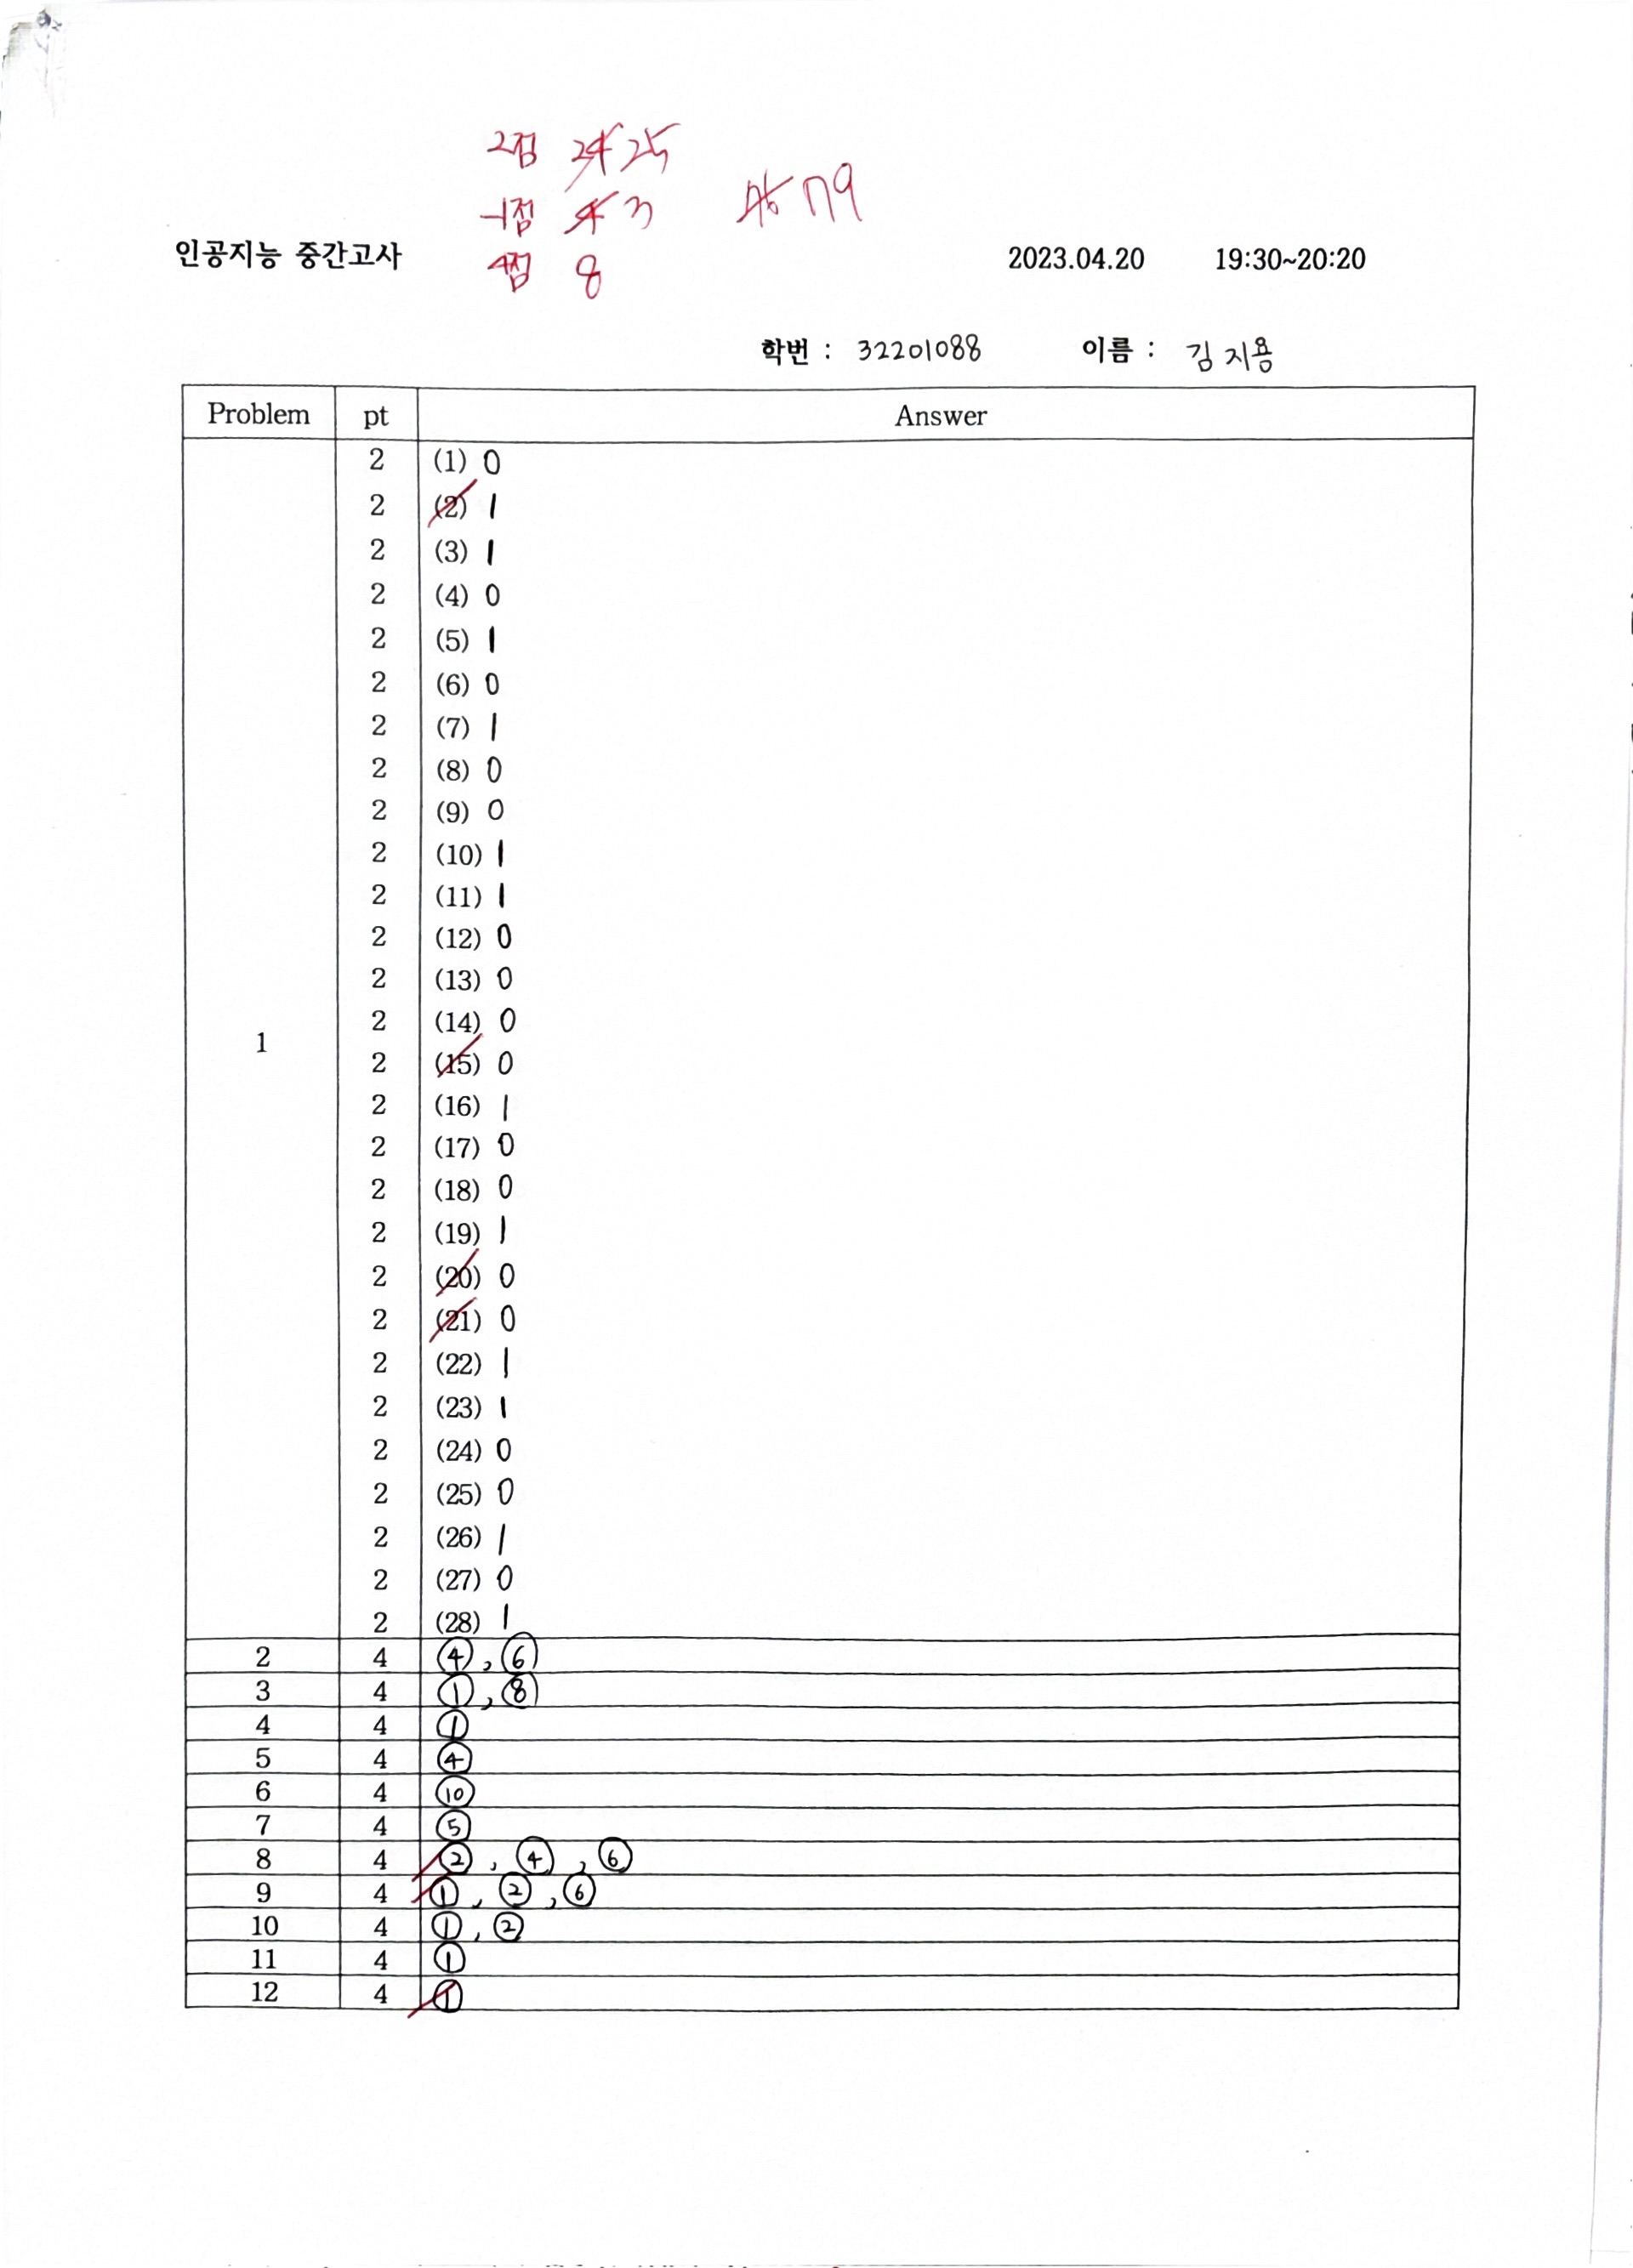 2점 24 25
-1점 4 3 79
4점 8
인공지능 중간고사 2023.04.20 19:30~20:20
학번 : 32201088 이름 : 김지용
Problem pt Answer
2 (1) 0
2 (2) 1
2 (3) 1
2 (4) 0
2 (5) 1
2 (6) 0
2 (7) 1
2 (8) 0
2 (9) 0
2 (10) 1
2 (11) 1
2 (12) 0
2 (13) 0
2 (14) 0
1 2 (15) 0
2 (16) 1
2 (17) 0
2 (18) 0
2 (19) 1
2 (20) 0
2 (21) 0
2 (22) 1
2 (23) 1
2 (24) 0
2 (25) 0
2 (26) 1
2 (27) 0
2 (28) 1
2 4 ④, ⑥
3 4 ①, ⑧
4 4 ①
5 4 ④
6 4 ⑩
7 4 ⑤
8 4 ②, ④, ⑥
9 4 ①, ②, ⑥
10 4 ①, ②
11 4 ①
12 4 ①